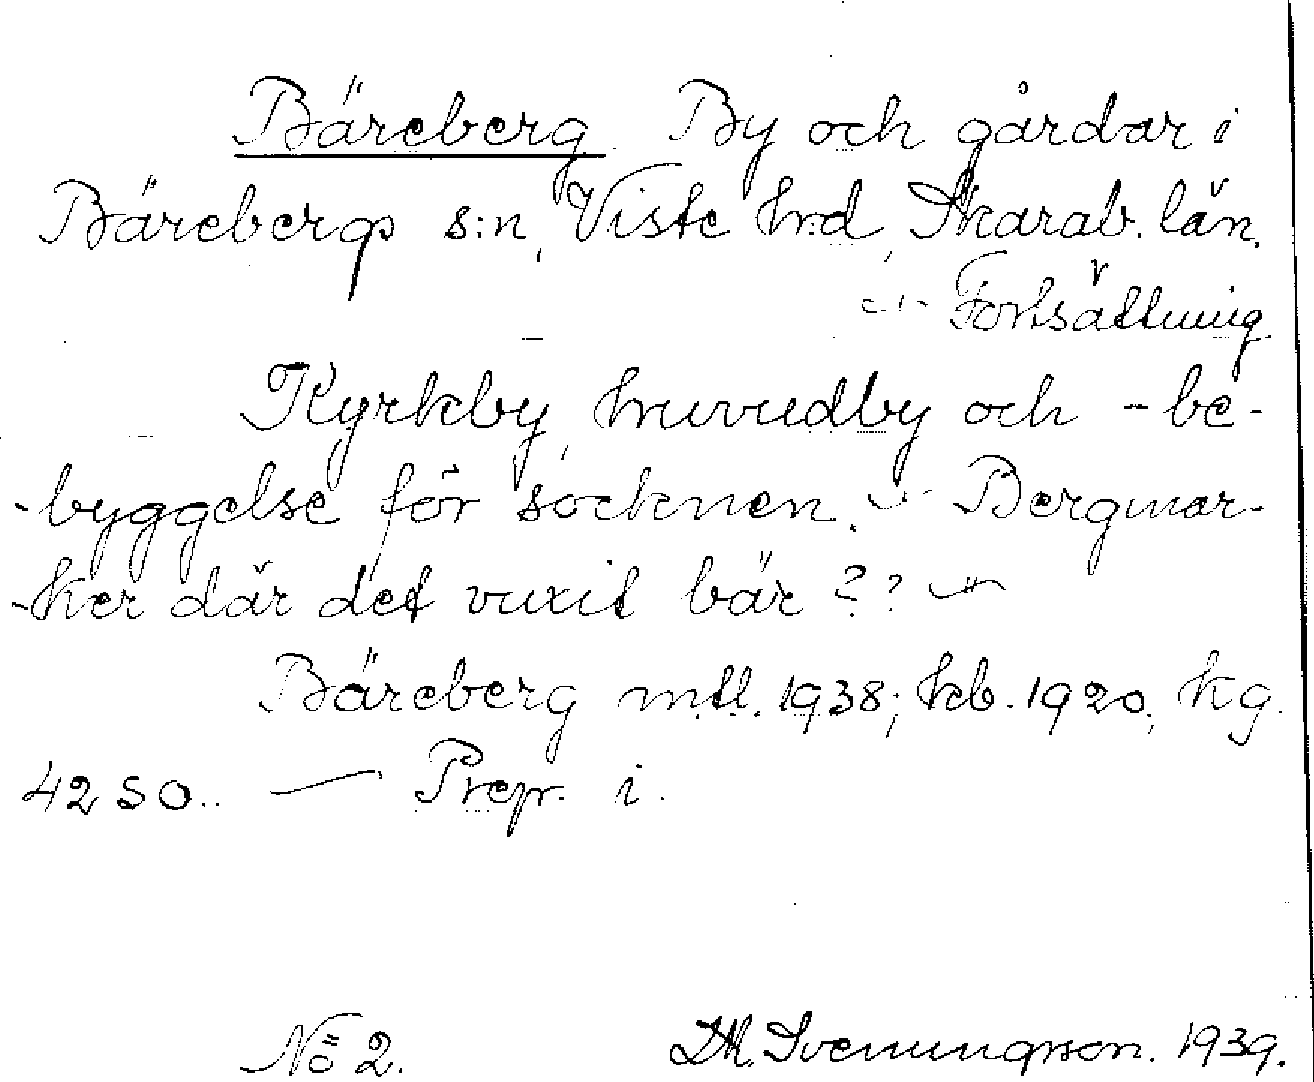 Bäreberg By och gårdar i
Bärebergs s:n, Viste hrd, Skarab. län.
-"- Fortsättning
Kyrkby, huvudby och -be-
-byggelse för socknen. -"- Bergmar-
-ker där det vuxit bär ?? -"-
Bäreberg mtl. 1938; kb. 1920, kg.
4250. — Prep. i.
Nö 2. D.M. Svenungsson. 1939.